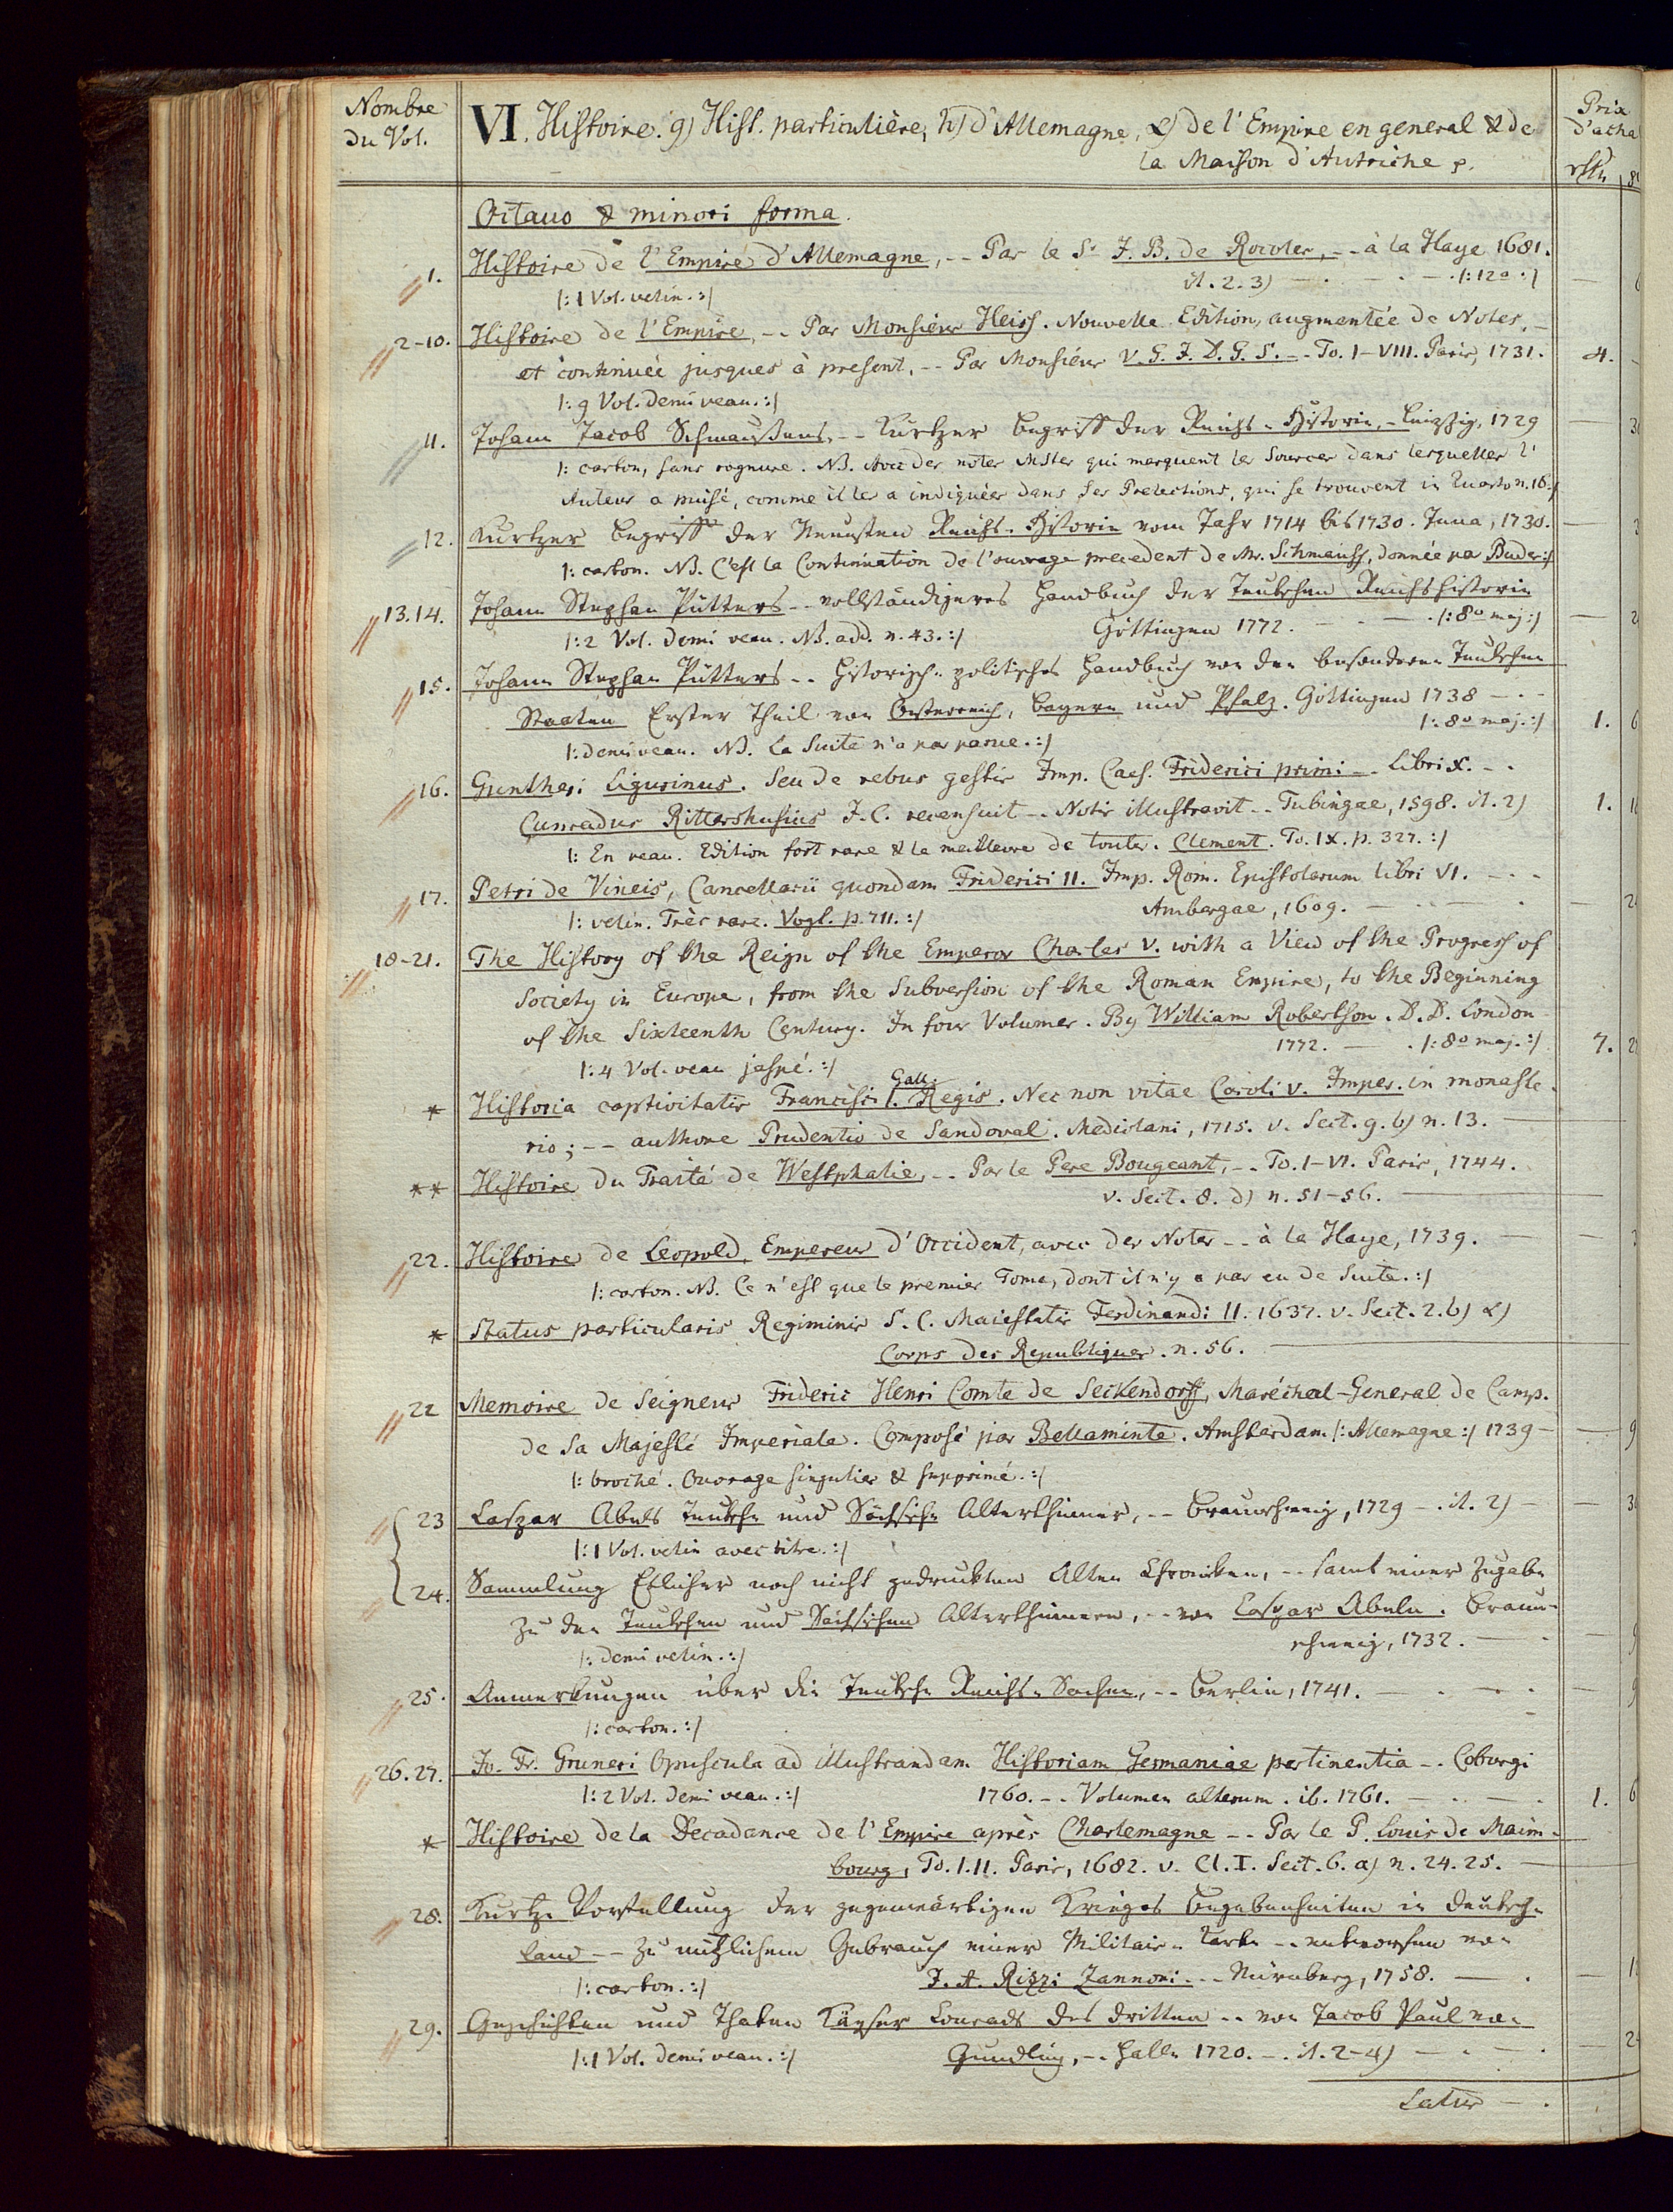 Nombre
du Vol.
VI. Histoire. 9) Hist. particulière, h) d'Allemagne, α) de l'Empire en general & de
la Maison d'Autriche
Prix
d'acha
rthl
Octavo & minori forma.
1. Histoire de l'Empire d'Allemagne, -- Par le Sr. J. B. de Rocoles, -- à la Haye 1681.
it. 2. 3) — |: 12o :|
|: 1 Vol. velin. :|
2-10. Histoire de l'Empire, -- Par Monsieur Heiss. Nouvelle Edition, augmentée de Notes, —
et continuée jusques à present, -- Par Monsieur V. G. J. D. G. S. -- To. I-VIII. Paris, 1731. 4.
|: 9 Vol. demi veau. :|
11. Johann Jacob Schmaussens, -- Kurtzer Begriff der Reichs-Historie, - Leipzig, 1729
|: carton, sans rognure. NB. Avec des notes MSter qui marquent les Sources dans lesquelles l'
Auteur a puisé, comme il les a indiquées dans ses Prelections, qui se trouvent in Quarto n. 18. :|
12. Kurtzer Begriff der Neuesten Reichs-Historie vom Jahr 1714 bis 1730. Jena, 1730.
|: carton. NB. C'est la Continuation de l'ouvrage precedent de Mr. Schmauss, donnée par Buder :|
13. 14. Johann Stephan Pütters -- vollständigeres Handbuch der Teutschen Reichshistorie
|: 2 Vol. demi veau. NB. add. n. 43. :| Göttingen 1772. — |: 8o maj :|
15. Johann Stephan Pütters -- Historisch-politisches Handbuch von den besonderen Teutschen
Staaten Erster Theil von Oesterreich, Bayern und Pfalz. Göttingen 1738 —
|: 8o maj. :| 1. 6
|: demi veau. NB. La Suite n'a pas parue. :|
16. Guntheri Ligurinus. Seu de rebus gestis Imp. Caes. Friderici primi -- Libri X. --
Cunradus Rittershusius J. C. recensuit -- Notis illustravit -- Tubingae, 1598. it. 2) 1.
|: En veau. Edition fort rare & la meilleure de toutes. Clement. To. IX. p. 327. :|
17. Petri de Vineis, Cancellarii quondam Friderici II. Imp. Rom. Epistolarum libri VI. —
|: velin. Très rare. Vogt. p. 711. :| Ambergae, 1609. —
18-21. The History of the Reign of the Emperor Charles V. with a View of the Progress of
Society in Europe, from the Subversion of the Roman Empire, to the Beginning
of the Sixteenth Century. In four Volumes. By William Robertson. D. D. London
1772. — |: 8o maj. :| 7.
|: 4 Vol. veau jaspé. :|
* Historia captivitatis Francisci I. Gall. Regis. Nec non vitae Caroli V. Imper. in monaste-
rio; -- authore Prudentio de Sandoval. Mediolani, 1715. v. Sect. 9. b) n. 13. —
** Histoire du Traité de Westphalie, -- Par le Pere Bougeant, -- To. I-VI. Paris, 1744.
v. Sect. 8. d) n. 51-56. —
22. Histoire de Leopold, Empereur d'Occident, avec des Notes -- à la Haye, 1739. —
|: carton. NB. Ce n'est que le premier Tome, dont il n'y a pas eu de Suite. :|
* Status particularis Regiminis S. C. Maiestatis Ferdinandi II. 1637. v. Sect. 2. b) α)
Corps des Republiques. n. 56. —
22 Memoire de Seigneur Frideric Henri Comte de Seckendorff, Maréchal-General de Camp.
de Sa Majesté Imperiale. Composé par Bellaminte. Amsterdam. |: Allemagne :| 1739 — 9
|: broché. Ouvrage singulier & supprimé. :|
23 Caspar Abels Teutsche und Sächsische Alterthümer, -- Braunschweig, 1729 —. it. 2) —
|: 1 Vol. velin avec titre. :|
24. Sammlung Etlicher noch nicht gedruckten Alten Chronicken, -- samt einer Zugabe
zu den Teutschen und Sächsischen Alterthümern, -- von Caspar Abeln. Braun-
schweig, 1732. —
|: demi velin. :|
25. Anmerkungen über die Teutsche Reichs-Sachen, -- Berlin, 1741. —
|: carton. :|
26. 27. Jo. Fr. Gruneri Opuscula ad illustrandam Historiam Germaniae pertinentia -- Coburgi
|: 2 Vol. demi veau. :| 1760. -- Volumen alterum. ib. 1761. — 1. 6
* Histoire de la Decadance de l'Empire après Charlemagne -- Par le P. Louis de Maim-
bourg, To. I. II. Paris, 1682. v. Cl. I. Sect. 6. a) n. 24. 25. —
28. Kurtze Vorstellung der gegenwärtigen Krieges Begebenheiten in Deutsch-
land -- zu nützlichem Gebrauch einer Militair-Carte -- entworfen von
|: carton. :| J. A. Rizzi Zannoni -- Nürnberg, 1758. —
29. Geschichten und Thaten Käyser Conrads des Dritten -- von Jacob Paul von
|: 1 Vol. demi veau. :| Gundling, -- Halle 1720. —. it. 2-4) —
Latus —